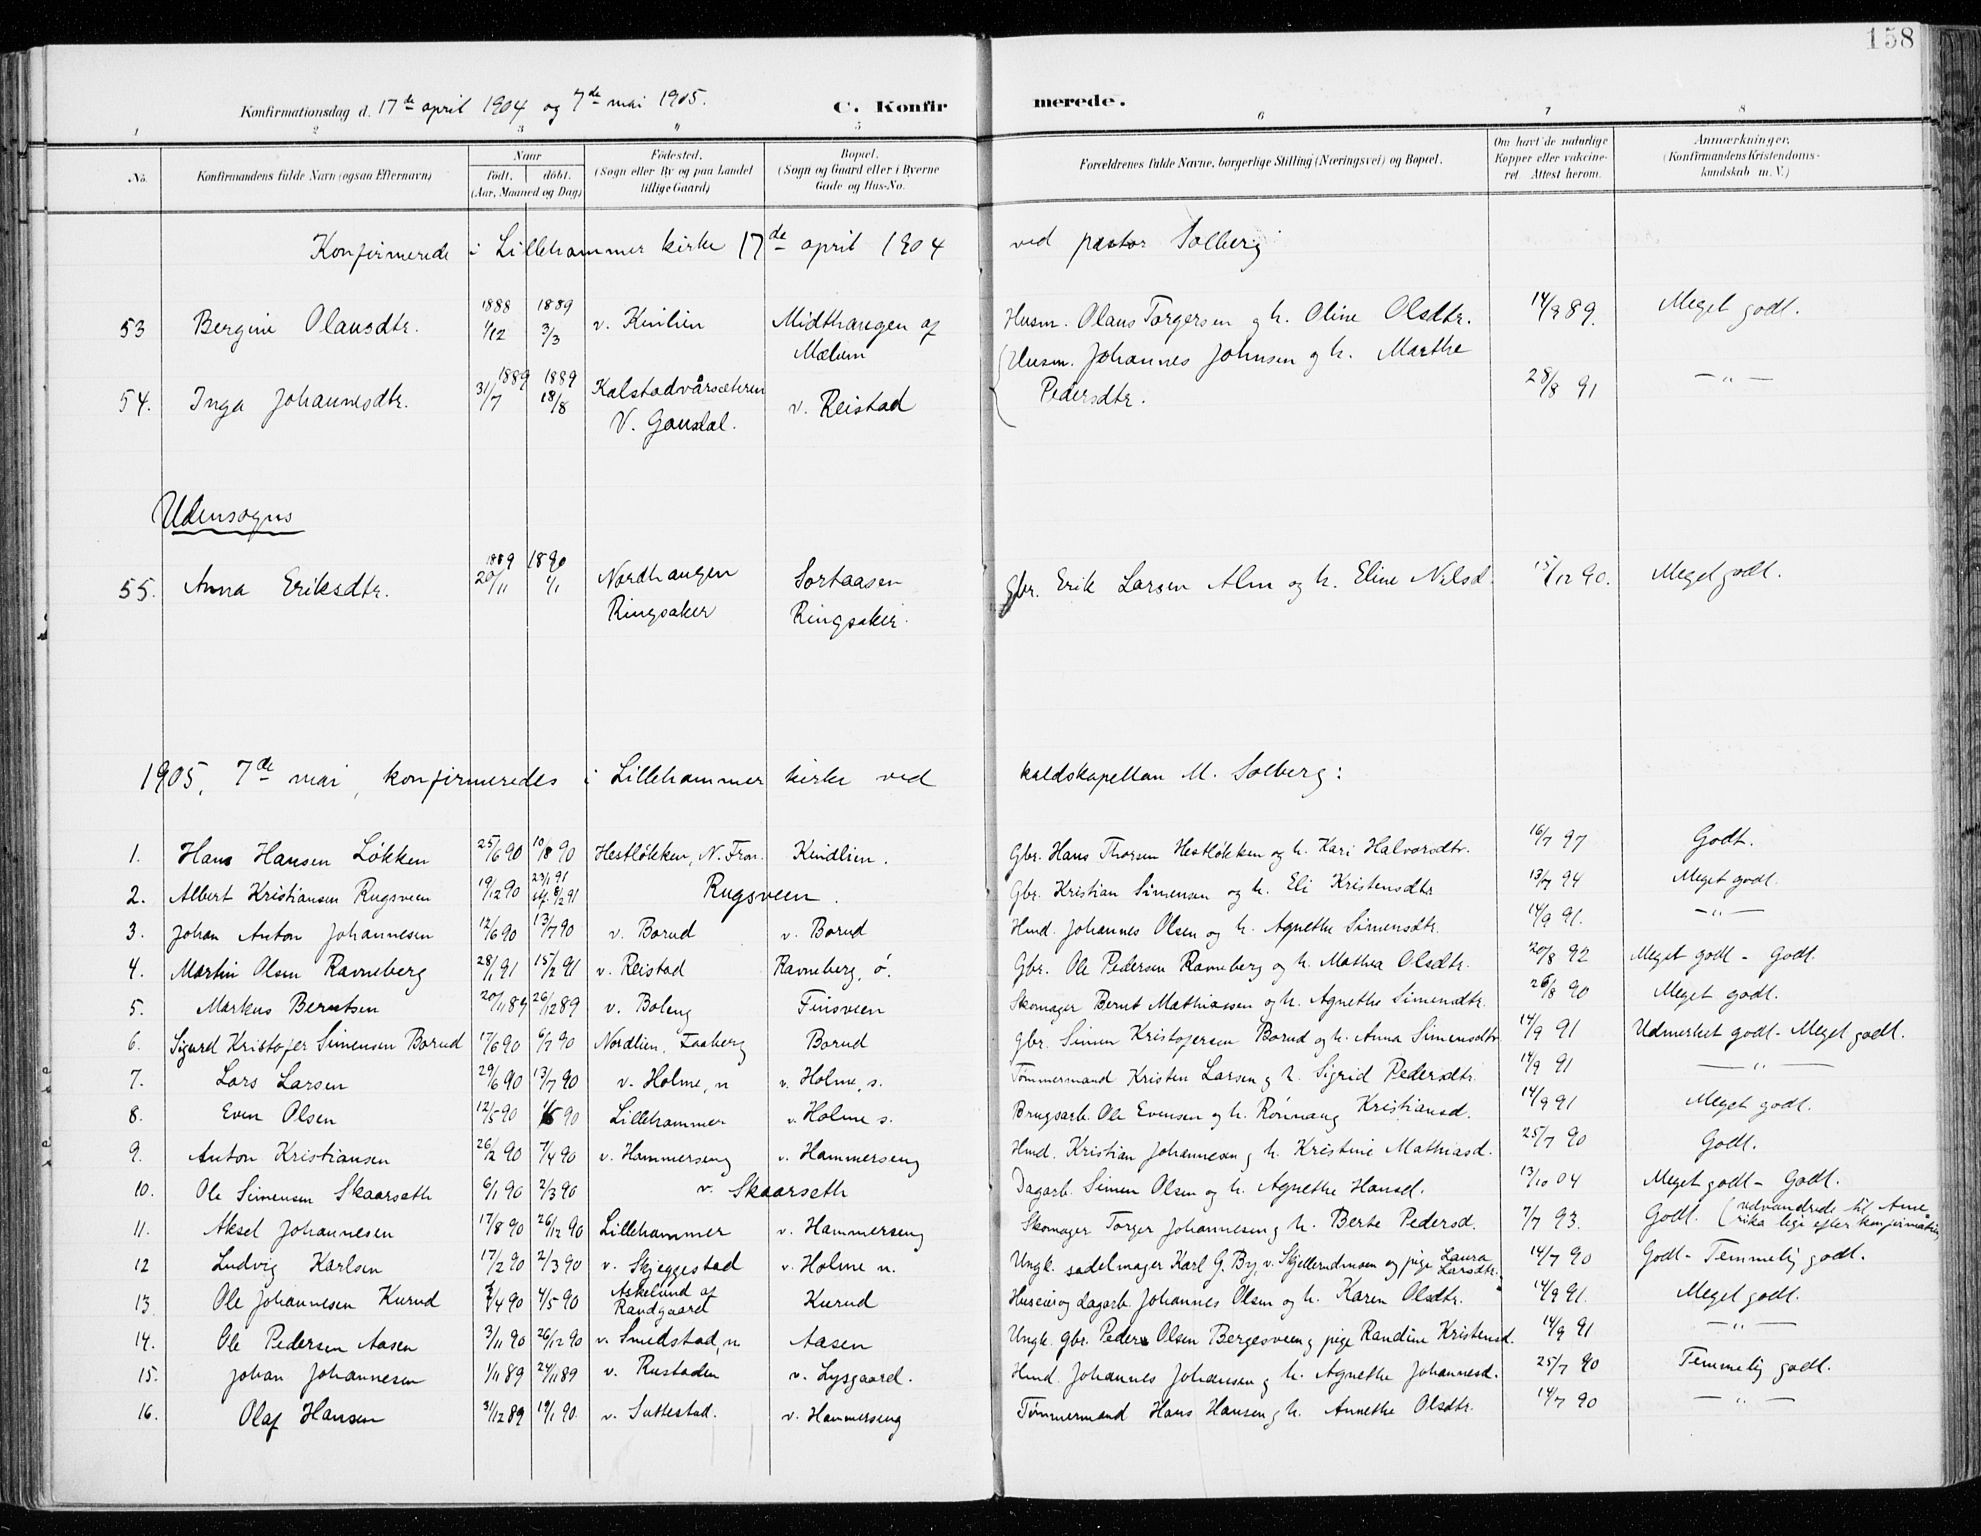 158
Konfirmationsdag d. 17de april 1904 og 7de mai 1905. C. Konfirmerede.
1 2 3 4 5 6 7 8
No. Konfirmandens fulde Navn (ogsaa Efternavn) Naar født. døbt. (Aar, Maaned og Dag) Fødested. (Sogn eller By og paa Landet tillige Gaard) Bopæl. (Sogn og Gaard eller i Byerne Gade og Hus-No. Forældrenes fulde Navne, borgerlige Stilling (Næringsvei) og Bopæl. Om havt de naturlige Kopper eller vakcineret. Attest herom. Anmærkninger. (Konfirmandens Kristendomskundskab m. V.)
Konfirmerede i Lillehammer kirke 17de april 1904 ved pastor Solberg
53 Bergine Olausdtr. 1888 1/12 1889 3/3 v. Kinlien Midthaugen af Mælum Husm. Olaus Torgersen og h. Oline Olsdtr. 14/9 89. Meget godt.
54. Inga Johannesdtr. 1889 31/7 1889 18/8 Kalstadvårsæteren V. Gausdal. v. Reistad Husm. Johannes Johnsen og h. Marthe Pedersdtr. 28/8 91 — „ —
Udensogns
55. Anna Eriksdtr. 1889 20/11 1890 1/1 Nordhaugen Ringsaker Sortaasen Ringsaker. Gbr. Erik Larsen Alm og h. Eline Nilsd. 15/12 90. Meget godt.
1905, 7de mai, konfirmeredes i Lillehammer kirke ved kaldskapellan M. Solberg:
1. Hans Hansen Løkken 25/6 90 10/8 90 Hestløkken, N. Fron. Kindlien. Gbr. Hans Thorsen Hestløkken og h. Kari Halvorsdtr. 16/7 97 Godt.
2. Albert Kristiansen Rugsveen 19/12 90 23/1 91 8/2 91 Rugsveen. Gbr. Kristian Simensen og h. Eli Kristensdtr 13/7 94 Meget godt.
3. Johan Anton Johannesen 12/6 90 13/7 90 v. Borud v. Borud Hmd. Johannes Olsen og h. Agnethe Simensdtr. 14/9 91. — „ —
4. Martin Olsen Ravneberg 28/1 91 15/2 91 v. Reistad Ravneberg, ø. Gbr. Ole Pedersen Ravneberg og h. Mathea Olsdtr. 20/8 92 Meget godt - Godt.
5. Markus Berntsen 20/11 89 26/12 89 v. Boleng Finsveen Skomager Bernt Mathiassen og h. Agnethe Simensdtr. 26/8 90 Meget godt.
6. Sigurd Kristofer Simensen Borud 17/6 90 6/7 90 Nordlien, Faaberg Borud Gbr. Simen Kristofersen Borud og h. Anna Simensdtr 14/9 91 Udmerket godt - Meget godt.
7. Lars Larsen 29/6 90 13/7 90 v. Holme, n v. Holme, s. Tømmermand Kristen Larsen og h. Sigrid Pedersdtr. 14/9 91 — „ —
8. Even Olsen 12/5 90 1/6 90 Lillehammer v. Holme s. Brugsarb. Ole Evensen og h. Rønnaug Kristiansd. 14/9 91 Meget godt.
9. Anton Kristiansen 26/2 90 7/4 90 v. Hammerseng v. Hammerseng Hmd. Kristian Johannesen og h. Kristine Mathiasd. 25/7 90 Godt.
10. Ole Simensen Skaarseth 6/1 90 2/3 90 v. Skaarseth Dagarb. Simen Olsen og h. Agnethe Hansd. 13/10 04 Meget godt - Godt.
11. Aksel Johannesen 17/8 90 26/12 90 Lillehammer v. Hammerseng Skomager Torger Johannesen og h. Berte Pedersd. 7/7 93. Godt. (udvandrede til Amerika lige efter konfirmation
12 Ludvig Karlsen 17/2 90 2/3 90 v. Skjeggestad v. Holme n. Ungk. sadelmager Karl G. By, v. Skjellerudmoen og pige Laura Larsdtr. 14/7 90 Godt - Temmelig godt.
13. Ole Johannesen Kurud /4 90 4/5 90 Askelund af Randgaard Kurud Huseier og dagarb. Johannes Olsen og h. Karen Olsdtr. 14/9 91. Meget godt.
14. Ole Pedersen Aasen 3/11 90 26/12 90 v. Smedstad, n Aasen Ungk. gbr. Peder Olsen Bergesveen og pige Randine Kristensd. 14/9 91 — „ —
15. Johan Johannesen 1/11 89 24/11 89 v. Rustaden v. Lysgaard. Hmd. Johannes Johansen og h. Agnethe Johannesd. 25/7 90 Temmelig godt.
16. Olaf Hansen 31/12 89 19/1 90. v. Suttestad. v. Hammerseng Tømmermand Hans Hansen og h. Annethe Olsdtr. 14/7 90 — „ —